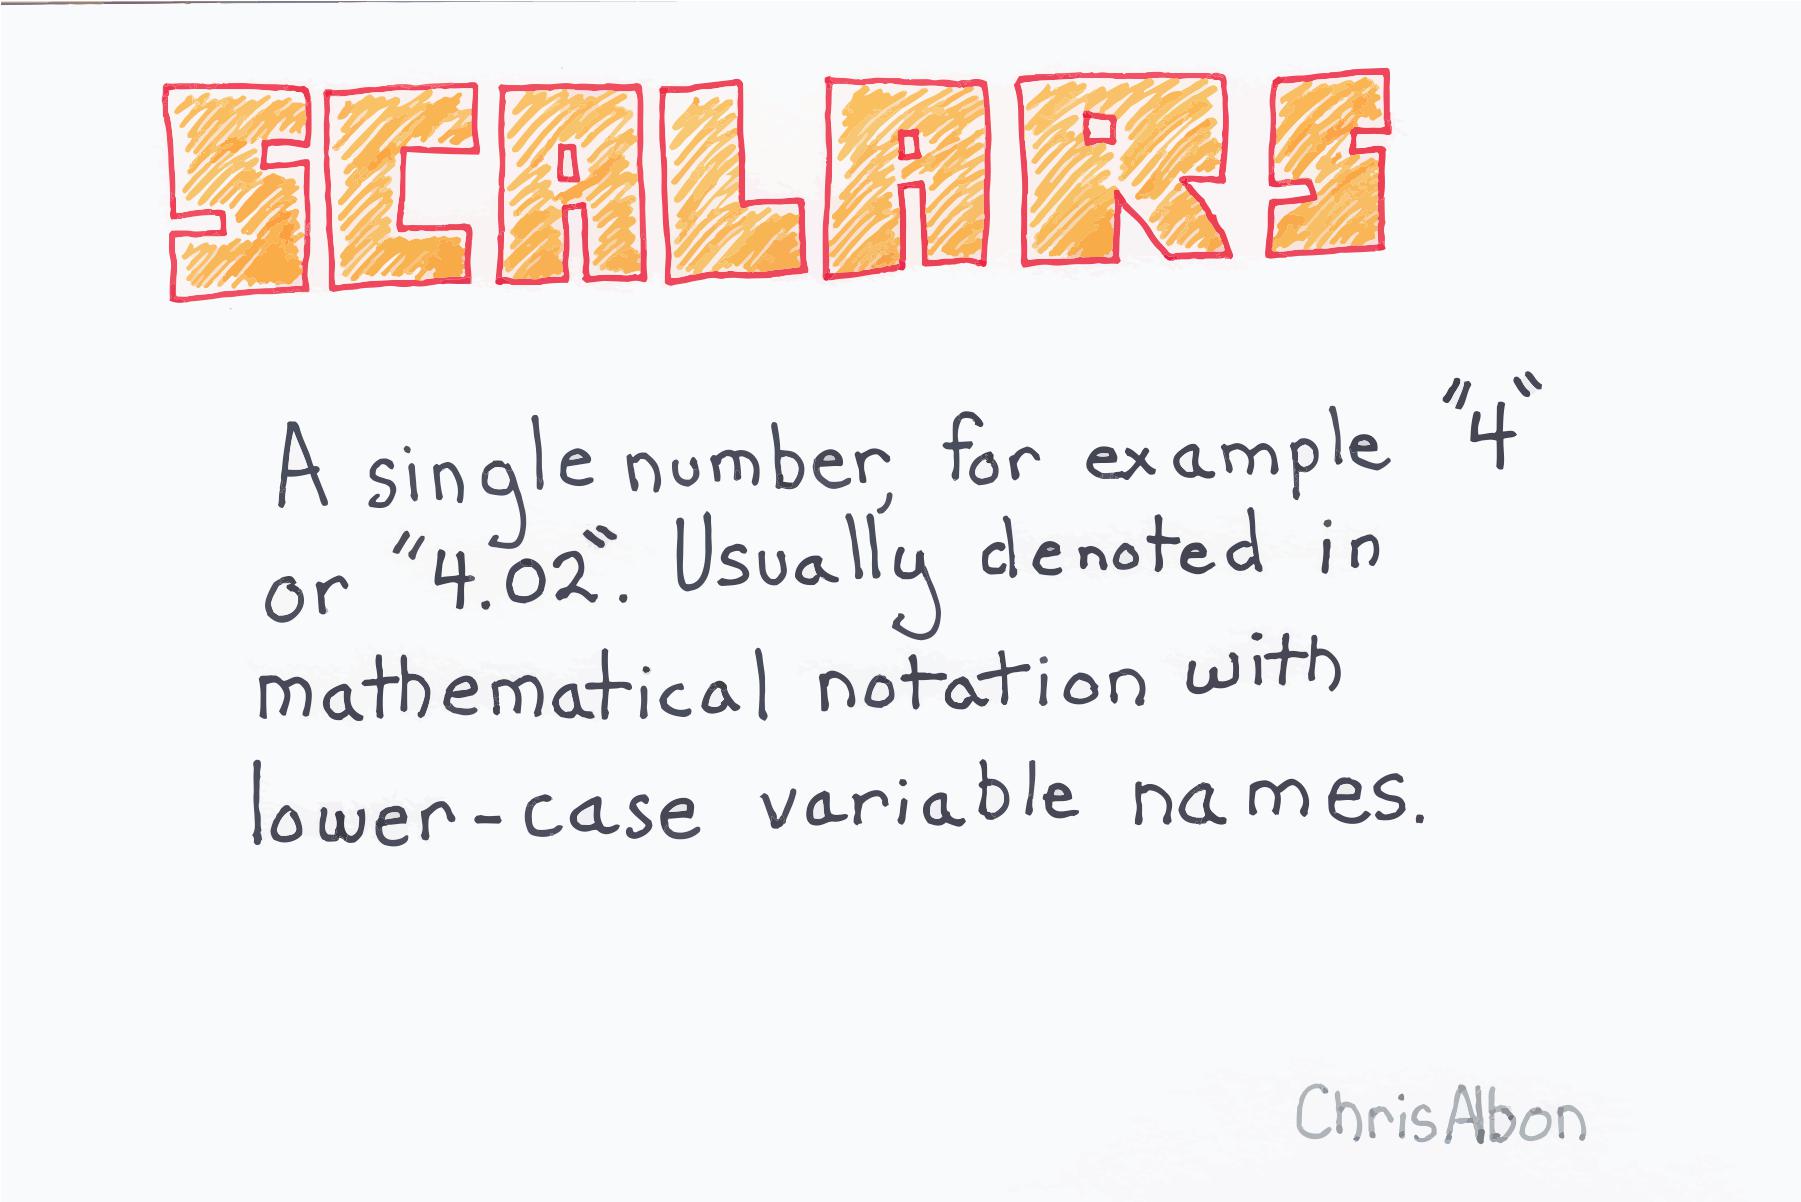 SCALARS
A single number, for example "4"
or "4.02". Usually denoted in
mathematical notation with
lower-case variable names.
ChrisAlbon